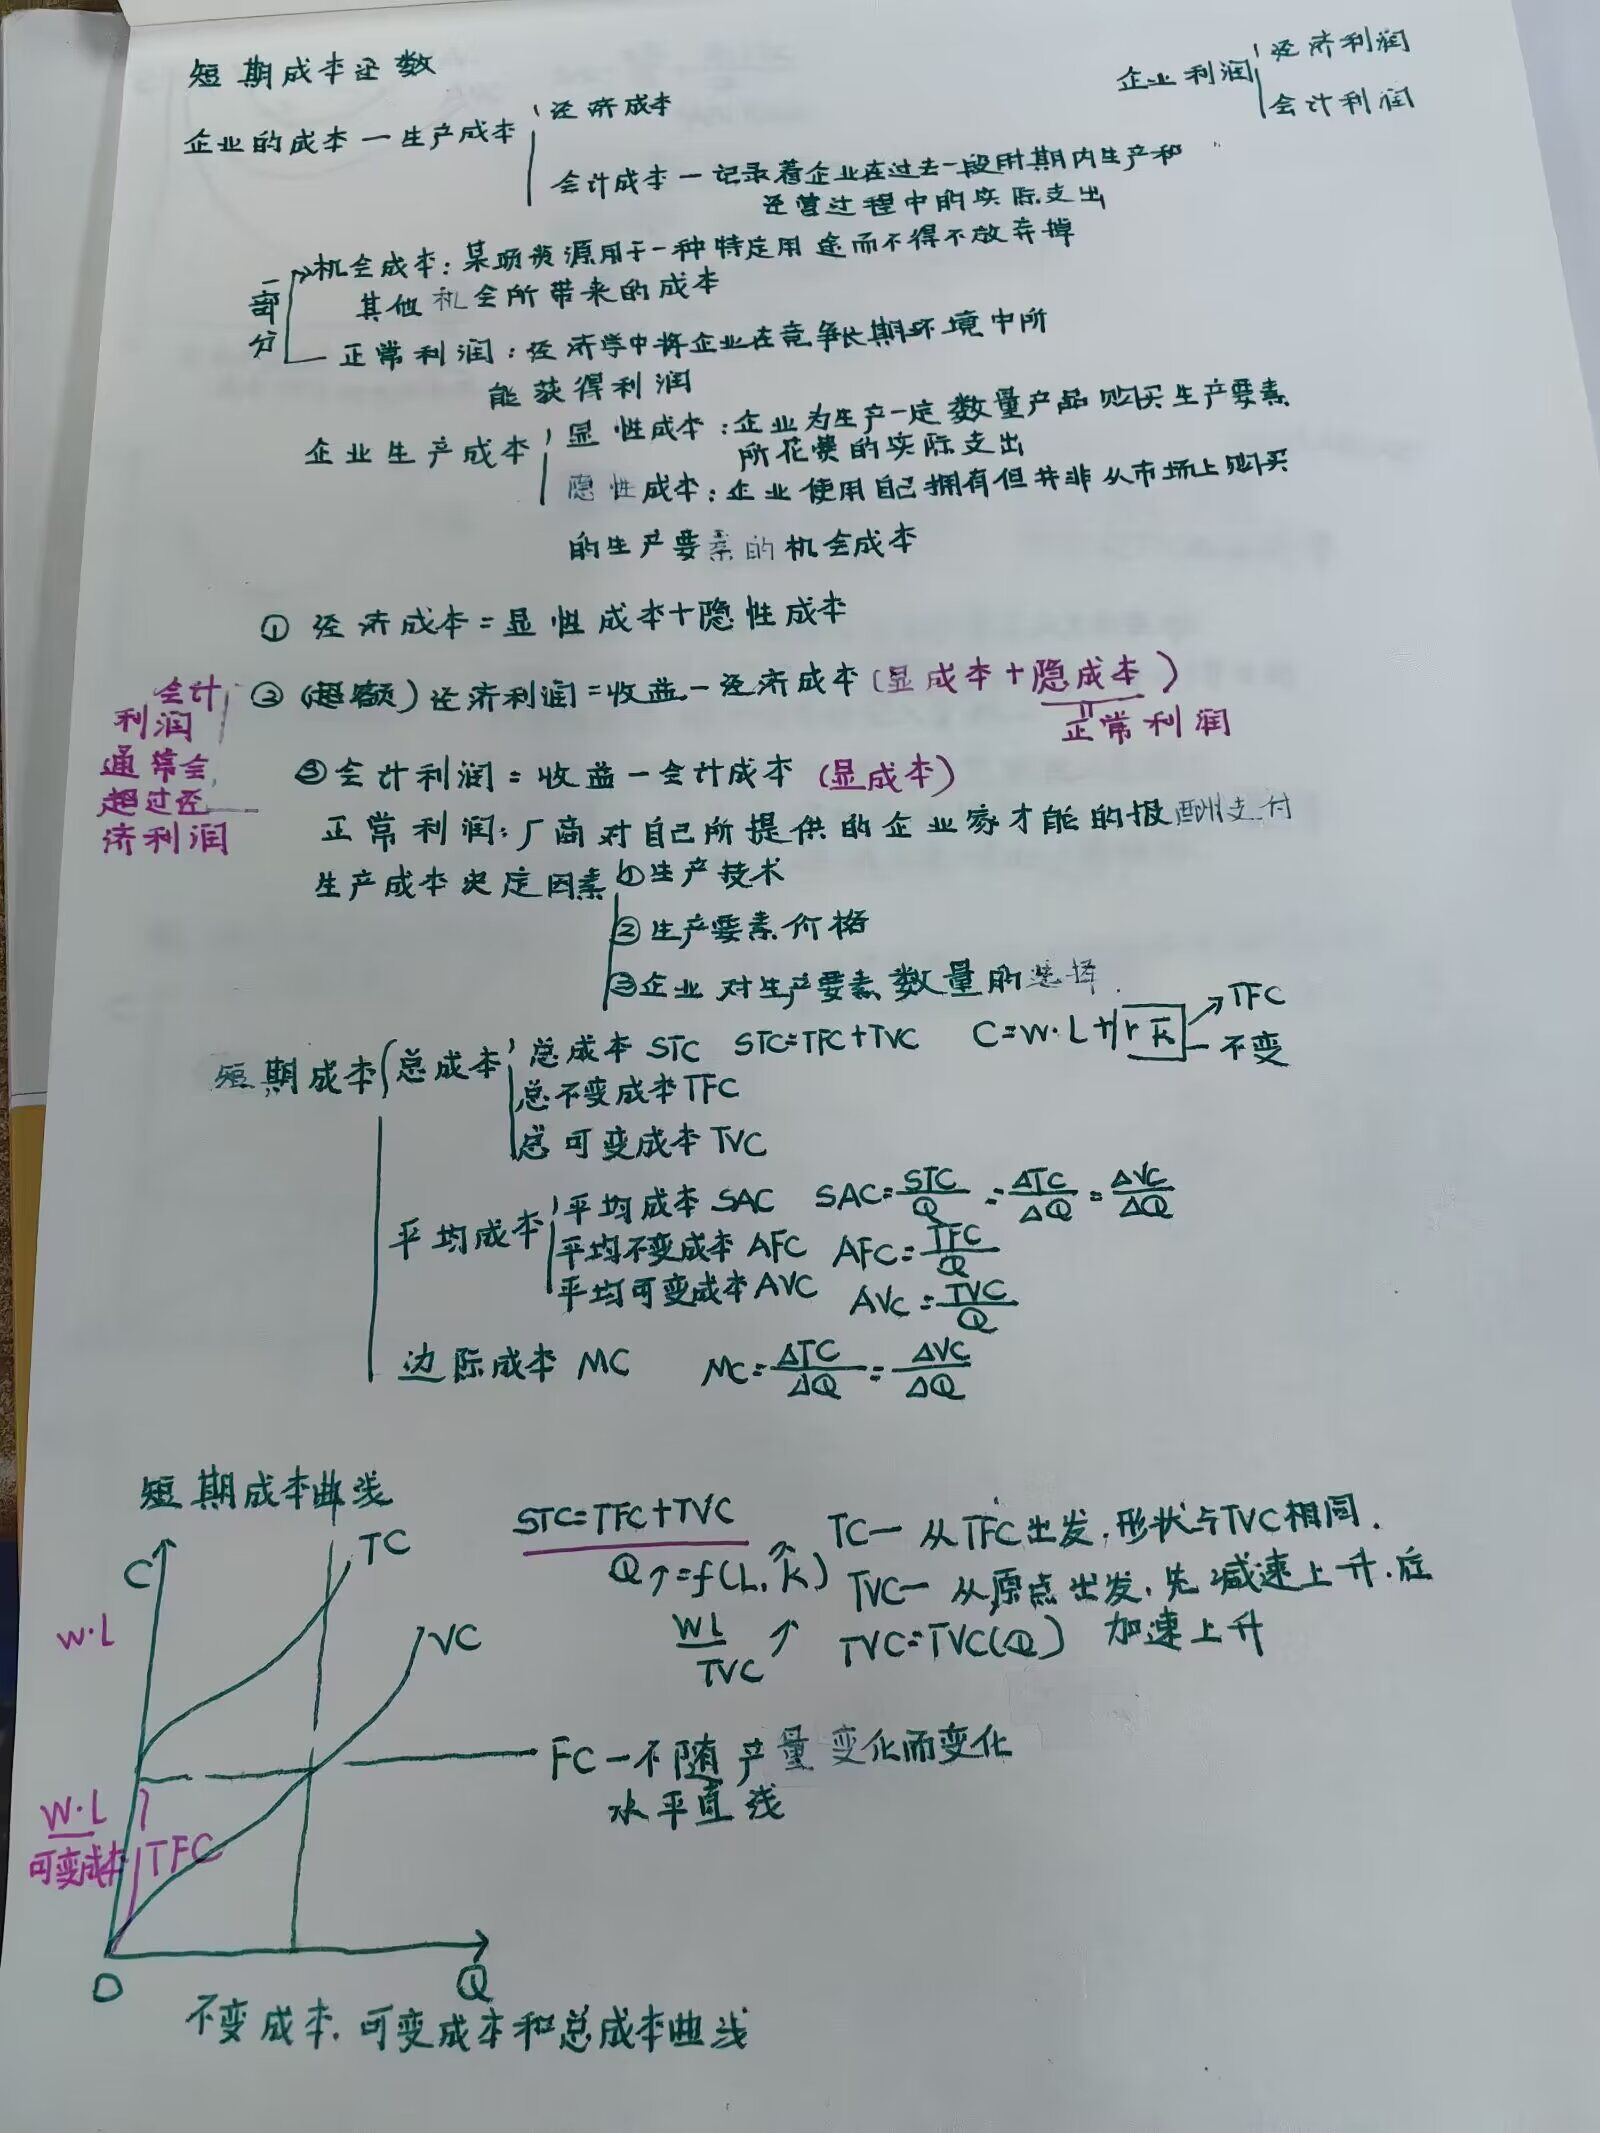 短期成本函数
企业利润
经济利润
会计利润
企业的成本—生产成本
经济成本
会计成本—记录着企业在过去一段时期内生产和
经营过程中的实际支出
一部分
机会成本：某项资源用于一种特定用途而不得不放弃掉
其他机会所带来的成本
正常利润：经济学中将企业在竞争长期环境中所
能获得利润
企业生产成本
显性成本：企业为生产一定数量产品购买生产要素
所花费的实际支出
隐性成本：企业使用自己拥有但并非从市场上购买
的生产要素的机会成本
① 经济成本=显性成本+隐性成本
②（超额）经济利润=收益—经济成本（显成本+隐成本）
正常利润
会计
利润
通常会
超过经
济利润
③会计利润=收益—会计成本（显成本）
正常利润：厂商对自己所提供的企业家才能的报酬支付
生产成本决定因素
①生产技术
②生产要素价格
③企业对生产要素数量的选择.
短期成本
总成本
总成本 STC STC=TFC+TVC C=W·L+r k̄ TFC
不变
总不变成本 TFC
总可变成本 TVC
平均成本
平均成本 SAC SAC=STC/Q=ΔTC/ΔQ=ΔVC/ΔQ
平均不变成本 AFC AFC=TFC/Q
平均可变成本 AVC AVC=TVC/Q
边际成本 MC MC=ΔTC/ΔQ=ΔVC/ΔQ
短期成本曲线
C
TC
W·L
VC
W·L
可变成本
TFC
O
Q
STC=TFC+TVC
Q↑=f(L,k)
WL/TVC ↑
TC—从TFC出发,形状与TVC相同.
TVC—从原点出发,先减速上升.后
TVC=TVC(Q) 加速上升
FC—不随产量变化而变化
水平直线
不变成本.可变成本和总成本曲线